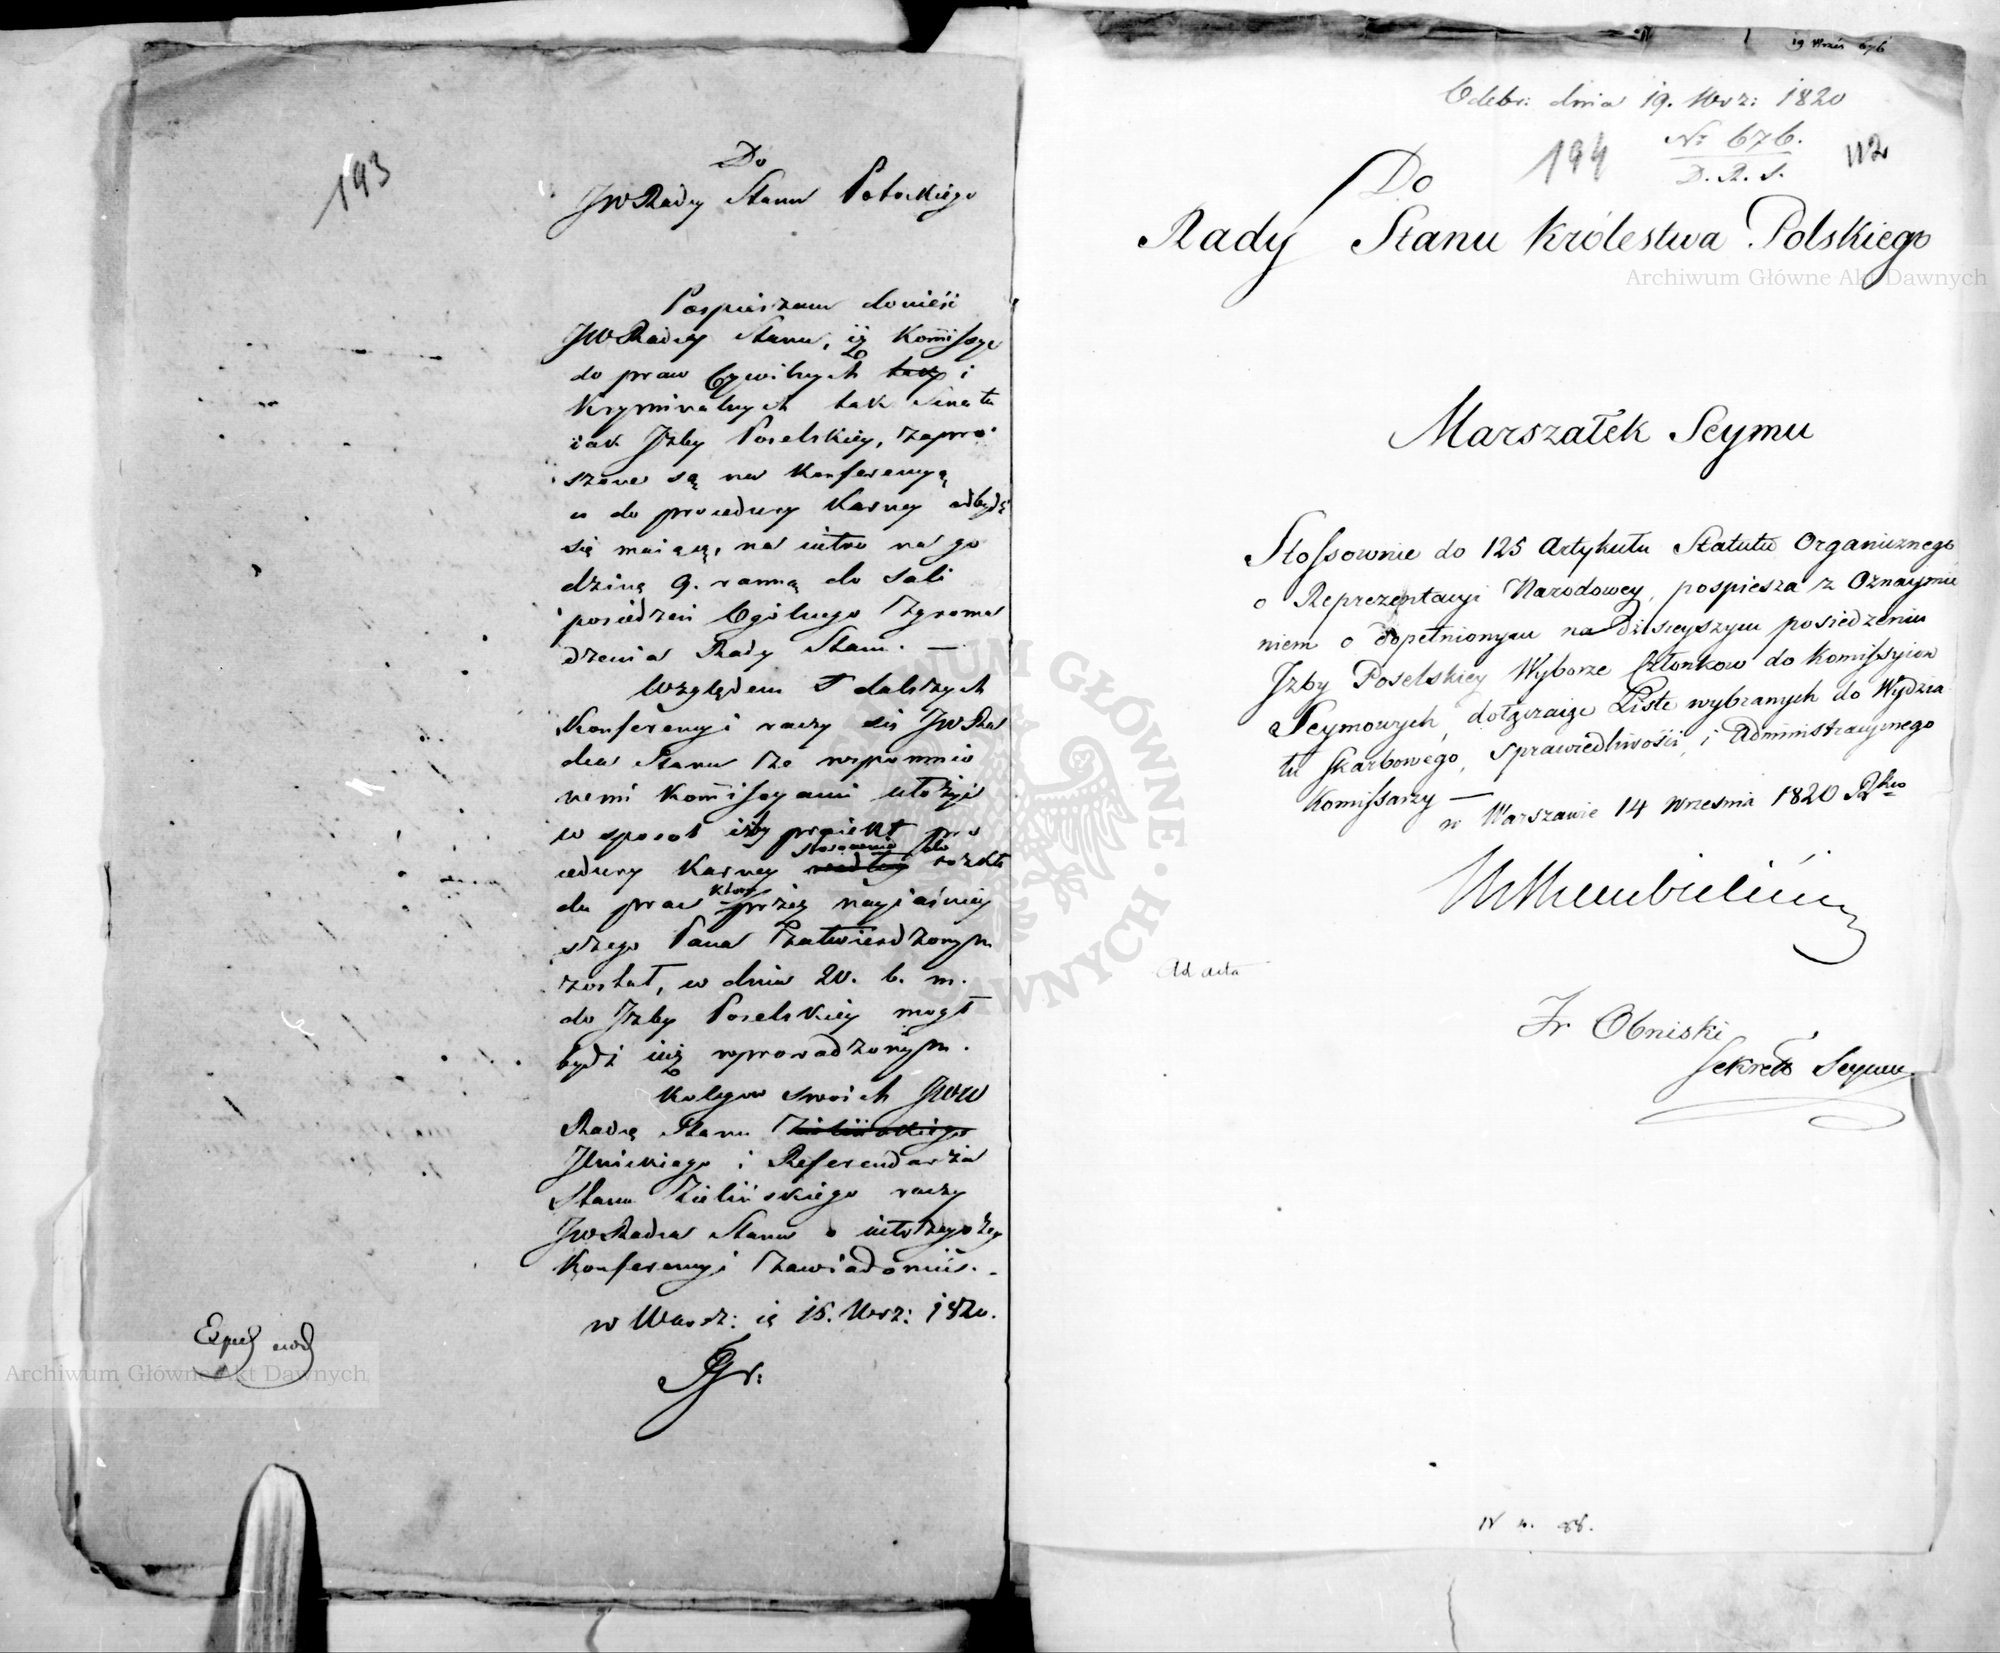 193
Do
JW Radcy Stanu Potockiego
Pospieszam donieść
JW Radcy Stanu, iż Kommissye
do praw Cywilnych tak i
Kryminalnych tak Senatu
iak Izby Poselskiey, zapro
szone są na Konferencyą
co do procedury Karney odbydź
się maiącą, na iutro na go
dzinę 9. ranną do Sali
posiedzeń Ogólnego Zgroma
dzenia Rady Stanu. —
Względem dalszych
Konferencyi raczy się JW Ra
dca Stanu ze wspomnio
nemi Kommissyami ułożyć
w sposób iżby proiekt pro
stosownie do
cedury Karney według rozkła
który
du prac przez nayiaśniey
szego Pana zatwierdzonym
został, w dniu 20. b. m.
do Izby Poselskiey mógł
bydź iuż wprowadzonym.
Kolegow swoich JWW
Radcę Stanu Zielińskiego
Ilnickiego i Referendarza
Stanu Zielińskiego raczy
JW Radca Stanu o iutrzeyszey
Konferencyi zawiadomić. -
w Warsz: 15. Wrz: 1820.
Gr:
Exped
Archiwum Główne Akt Dawnych
19 Wrześ 676
Odebr: dnia 19. Wrz: 1820
194
No 676.
D. R. S.
112
Do
Rady Stanu Królestwa Polskiego
Archiwum Główne Akt Dawnych
Marszałek Seymu
Stossownie do 125 Artykułu Statutu Organicznego
o Reprezentacyi Narodowey, pospiesza z Oznaymie
niem o dopełnionym na dzisieyszym posiedzeniu
Izby Poselskiey Wyborze Członkow do Komissyiow
Seymowych, dołączaiąc Listę wybranych do Wydzia
łu Skarbowego, Sprawiedliwości, i Administracyinego
Komissarzy —
w Warszawie 14 Września 1820 Rku
Ad acta
Fr Obniski
Sekret Seymu
IV 4. 88.
ARCHIWUM GŁÓWNE AKT DAWNYCH